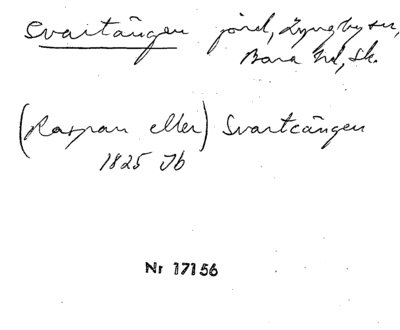 Svartängen jord, Lyngby sn,
Bara hd, Sk.
(Raspan eller) Svarteängen
1825 Jb
Nr 17156